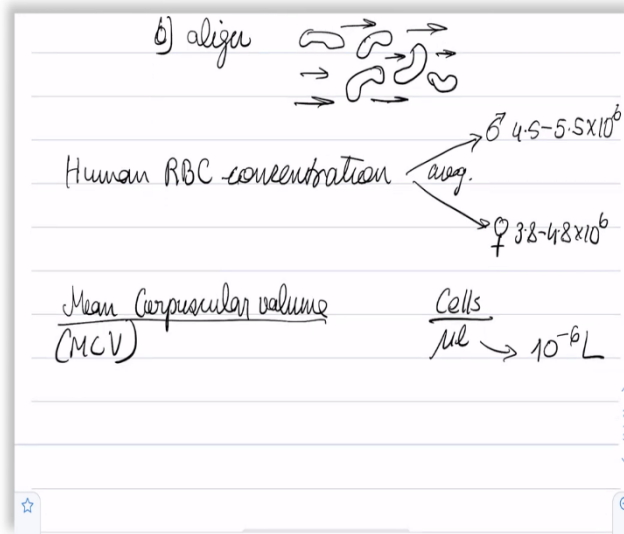 b) align
Human RBC concentration avg.
♂ 4.5-5.5x10⁶
♀ 3.8-4.8x10⁶
Mean Corpuscular volume
(MCV)
Cells
μl → 10⁻⁶L